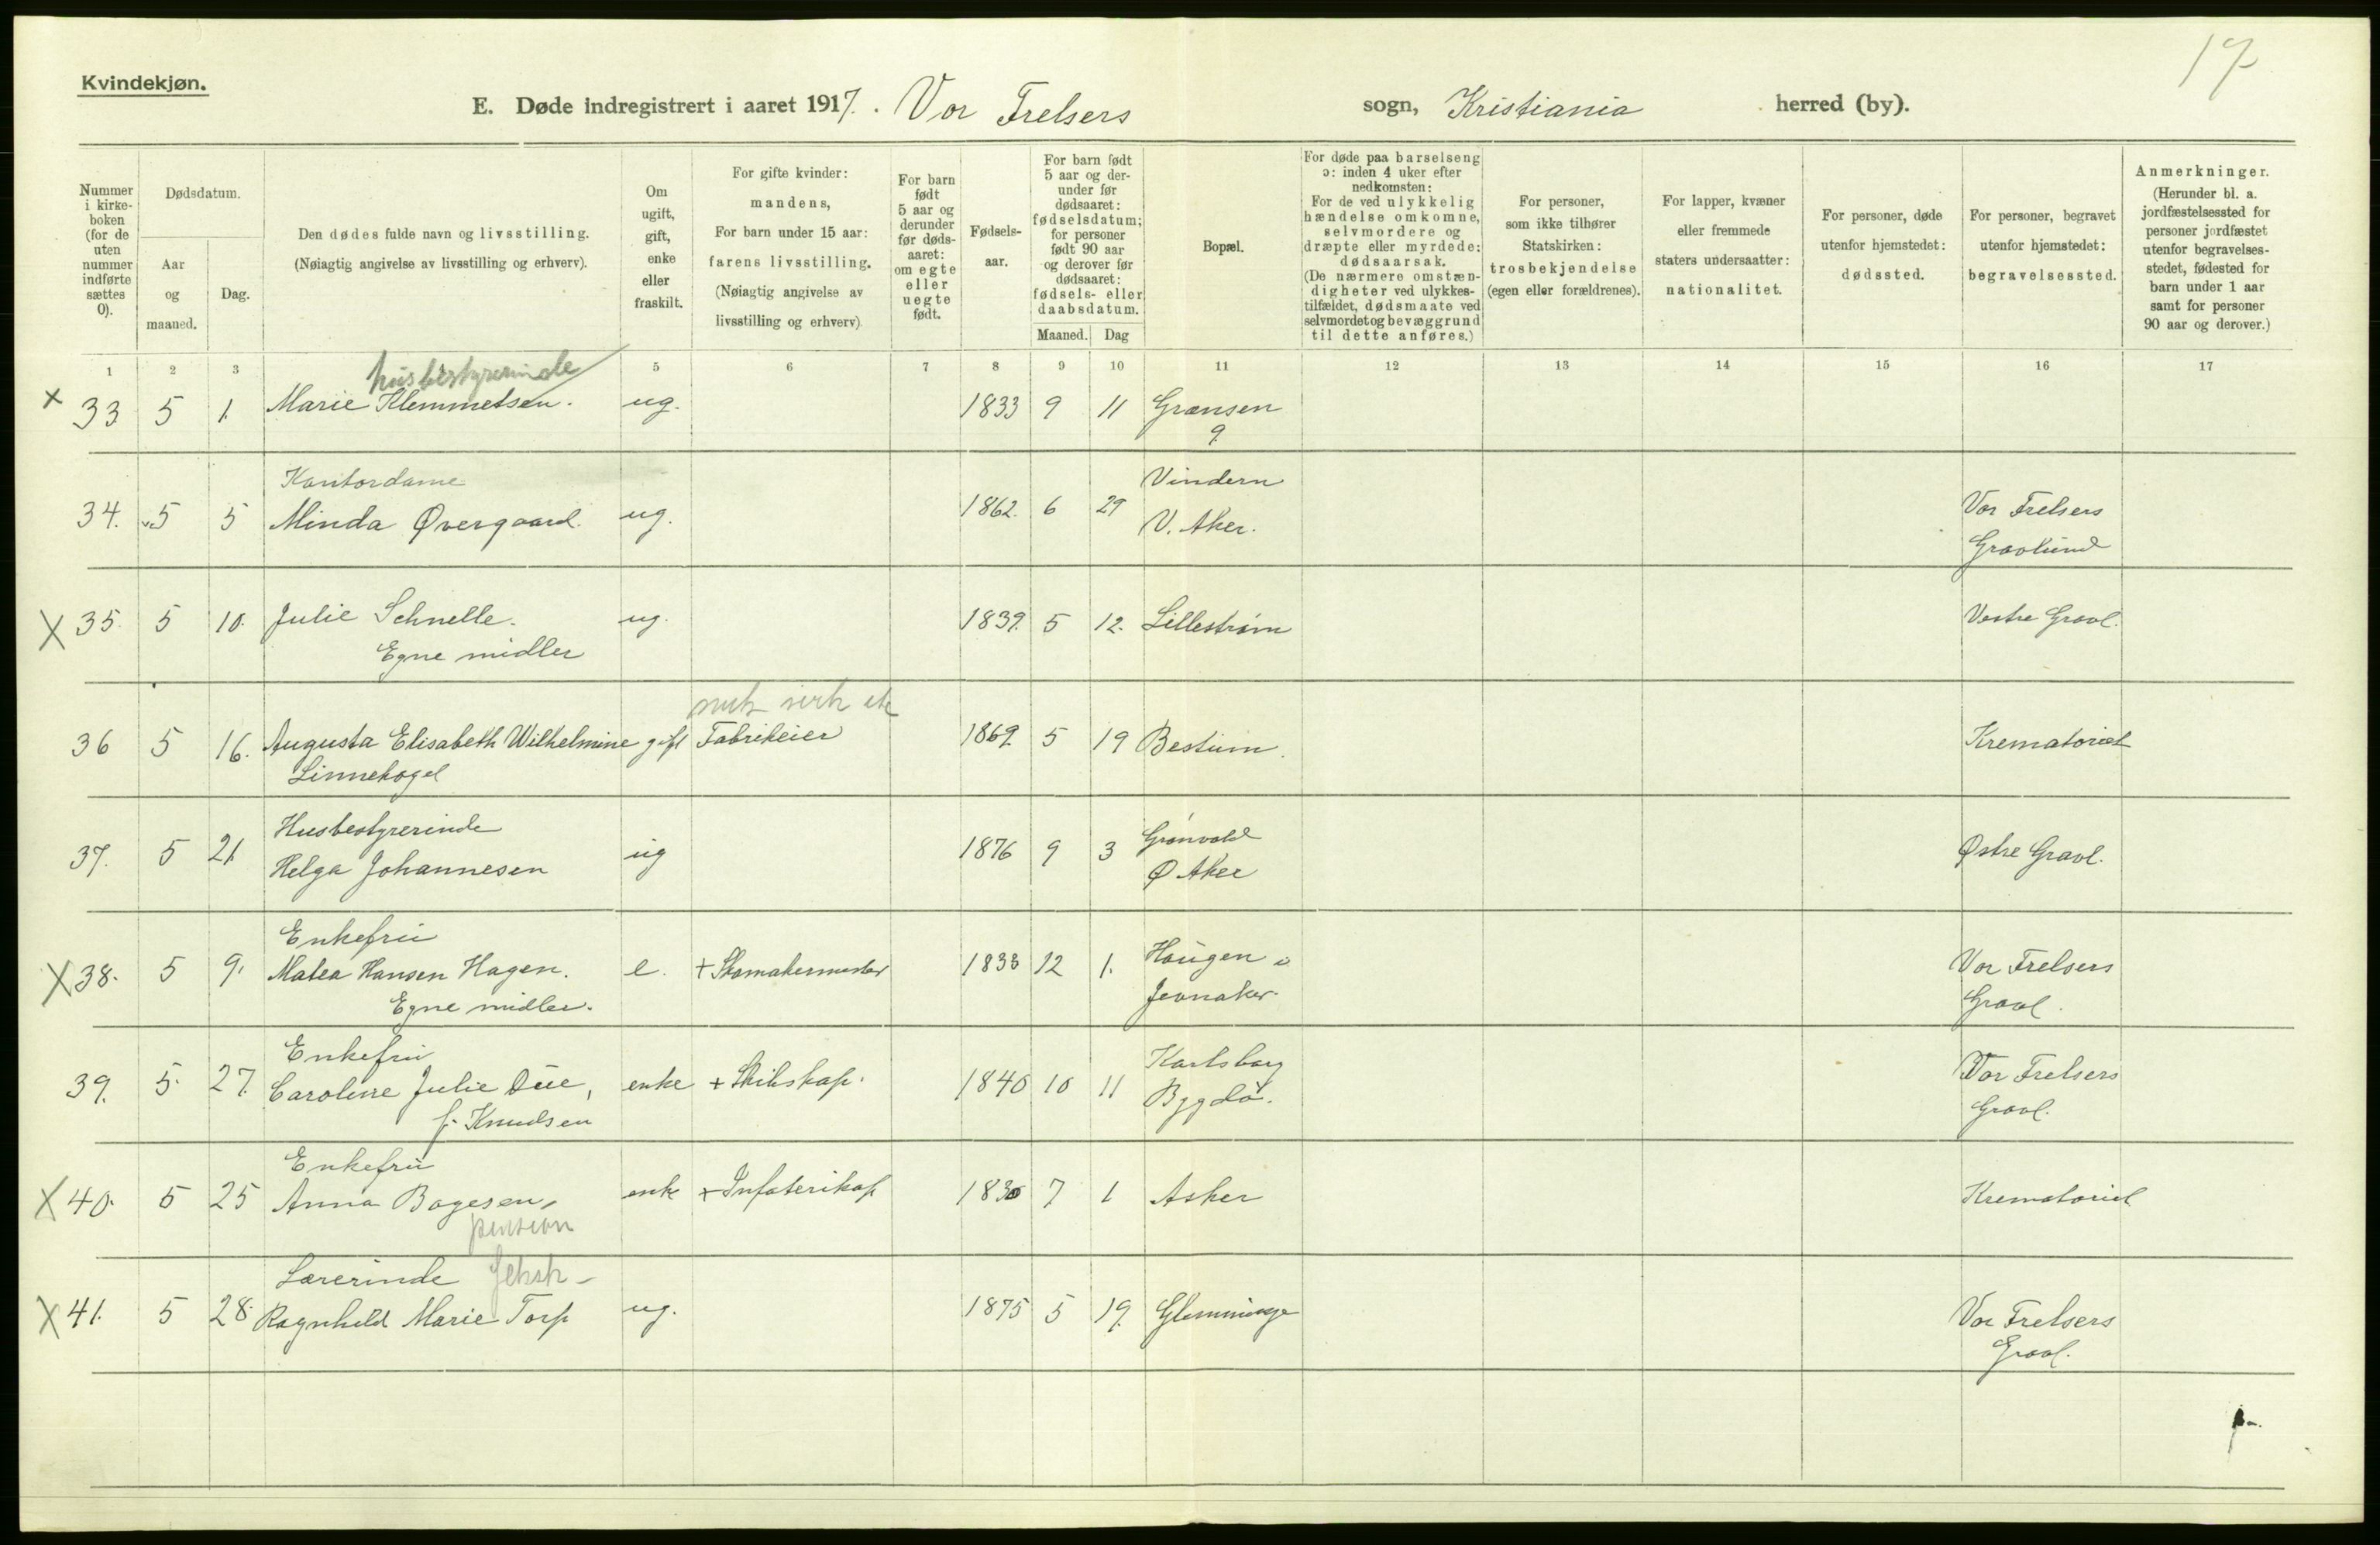 17
Kvindekjøn.
E. Døde indregistrert i aaret 1917. Vor Frelsers sogn, Kristiania herred (by).
Nummer i kirkeboken (for de uten nummer indførte sættes 0).
Dødsdatum.
Aar og maaned.
Dag.
Den dødes fulde navn og livsstilling.
(Nøiagtig angivelse av livsstilling og erhverv).
Om ugift, gift, enke eller fraskilt.
For gifte kvinder: mandens,
For barn under 15 aar: farens livsstilling.
(Nøiagtig angivelse av livsstilling og erhverv)
For barn født 5 aar og derunder før dødsaaret: om egte eller uegte født.
Fødselsaar.
For barn født 5 aar og derunder før dødsaaret: fødselsdatum; for personer født 90 aar og derover før dødsaaret: fødsels- eller daabsdatum.
Maaned. Dag
Bopæl.
For døde paa barselseng ɔ: inden 4 uker efter nedkomsten:
For de ved ulykkelig hændelse omkomne, selvmordere og dræpte eller myrdede: dødsaarsak.
(De nærmere omstændigheter ved ulykkestilfældet, dødsmaate ved selvmordet og bevæggrund til dette anføres.)
For personer, som ikke tilhører Statskirken: trosbekjendelse (egen eller forældrenes).
For lapper, kvæner eller fremmede staters undersaatter: nationalitet.
For personer, døde utenfor hjemstedet: dødssted.
For personer, begravet utenfor hjemstedet: begravelsessted.
Anmerkninger.
(Herunder bl. a. jordfæstelsessted for personer jordfæstet utenfor begravelsesstedet, fødested for barn under 1 aar samt for personer 90 aar og derover.)
1 2 3 5 6 7 8 9 10 11 12 13 14 15 16 17
husbestyrerinde
x 33 5 1. Marie Klemmetsen. ug. 1833 9 11 Grænsen
9
Kontordame Vindern
34. 5 5 Minda Øvergaard. ug. 1862. 6 29 V. Aker. Vor Frelsers
Gravlund
X 35. 5 10. Julie Schnelle. ug. 1839. 5 12. Lillestrøm Vestre Gravl.
Egne midler
36 5 16. Augusta Elisabeth Wilhelmine gift Fabrikeier 1869. 5 19 Bestum. Krematoriet
Linnekogel
Husbestyrerinde Grønvold
37. 5 21. Helga Johannesen ug 1876 9 3 Ø Aker Østre Gravl.
Enkefru
X 38. 5 9. Matea Hansen Hagen. e. + Skomakermester 1833 12 1. Haugen i Vor Frelsers
Egne midler. Jevnaker. Gravl.
Enkefru Karlsborg
39. 5. 27. Caroline Julie Due, enke + Skibskap. 1840 10 11 Bygdø. Vor Frelsers
f. Knudsen Gravl.
Enkefru
X 40. 5 25 Anna Bøgesen, enke + Infaterikap 1830 7 1 Asker Krematoriet
pension
Lærerinde
X 41. 5 28. Ragnhild Marie Torp ug. 1875 5 19. Glemminge Vor Frelsers
Gravl.